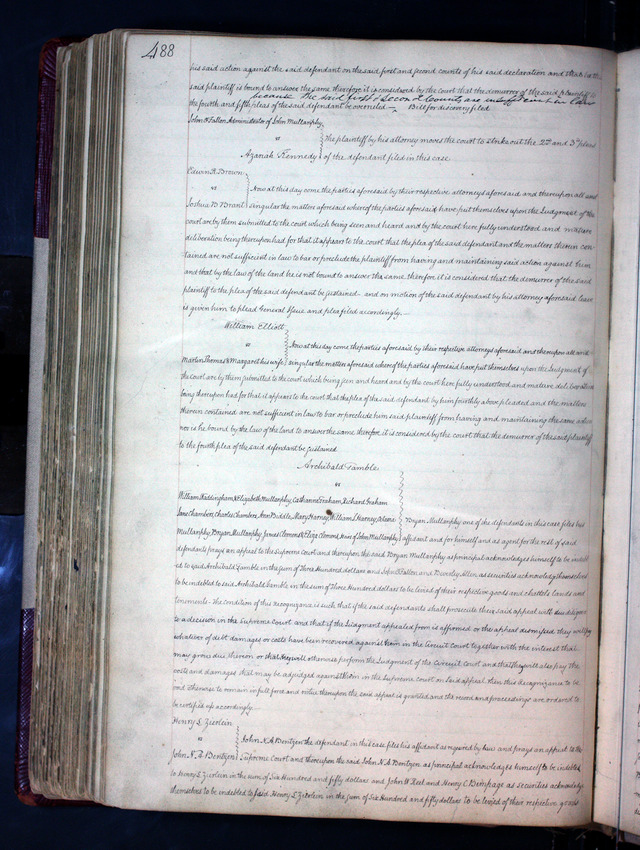 488
his said action against the said defendant on the said first and second counts of his said declaration and that
said plaintiff is bound to answer the same therefore it is considered by the court that the demurrer of the said plaintiff to
because the said first & second Counts are insufficient in Law
the fourth and fifth pleas of the said defendant be overruled — Bill for discovery filed
John O'Fallon Administrator of John Mullanphy
vs
The plaintiff by his attorney moves the court to strike out the 2nd and 3d pleas
Azariah Kennedy
of the defendant filed in this case
Edwin R. Brown
vs
Now at this day come the parties aforesaid by their respective attorneys aforesaid and thereupon all and
Joshua B Brant
singular the matters aforesaid where of the parties aforesaid have put themselves upon the Judgment of the
court are by them submitted to the court which being seen and heard and by the court here fully understood and mature
deliberation being thereupon had for that it appears to the court that the plea of the said defendant and the matters therein con-
tained are not sufficient in law to bar or preclude the plaintiff from having and maintaining said action against him
and that by the law of the land he is not bound to answer the same therefore it is considered that the demurrer of the said
plaintiff to the plea of the said defendant be sustained and on motion of the said defendant by his attorney aforesaid leave
is given him to plead General Issue and plea filed accordingly.—
William Elliott
vs
Now at this day come the parties aforesaid by their respective attorneys aforesaid and thereupon all and
Martin Thomas & Margaret his wife
singular the matters aforesaid where of the parties aforesaid have put themselves upon the Judgment of
the court are by them submitted to the court which being seen and heard and by the court here fully understood and mature deliberation
being thereupon had for that it appears to the court that the plea of the said defendant by him fourthly above pleaded and the matters
therein contained are not sufficient in law to bar or preclude him said plaintiff from having and maintaining the same action
nor is he bound by the law of the land to answer the same therefore it is considered by the court that the demurrer of the said plaintiff
to the fourth plea of the said defendant be sustained
Archibald Gamble
vs
William Waddingham & Elizabeth Mullanphy Catharine Graham, Richard Graham
Jane Chambers, Charles Chambers, Ann Biddle, Mary Harney, William S. Harney, Octavia
Mullanphy Bryan Mullanphy James Clemens & Eliza Clemens, Heirs of John Mullanphy
Bryan Mullanphy one of the defendants in this case files his
affidavit and for himself and as agent for the rest of said
defendants prays an appeal to the supreme Court and thereupon the said Bryan Mullanphy as principal acknowledges himself to be indebt
ed to said Archibald Gamble in the sum of Three Hundred dollars and John O'Fallon and Beverley Allen as securities acknowledge themselves
to be indebted to said Archibald Gamble in the sum of Three Hundred dollars to be levied of their respective goods and chattels lands and
tenements. The condition of this recognizance is such that if the said defendants shall prosecute their said appeal with due diligence
to a decision in the Supreme Court and that if the Judgment appealed from is affirmed or the appeal dismissed they will pay
whatever of debt damages or costs have been recovered against him in the Circuit Court together with the interest that
may grow due thereon or that they will otherwise perform the Judgment of the Circuit Court and that they will also pay the
costs and damages that may be adjudged against him in the Supreme Court on said appeal then this recognizance to be
void otherwise to remain in full force and virtue thereupon the said appeal is granted and the record and proceedings are ordered to
be certified up accordingly.
Henry L Zierlein
vs
John N. A. Bentzen the defendant in this case files his affidavit as required by law and prays an appeal to the
John N. A. Bentzen
Supreme Court and thereupon the said John N. A. Bentzen as principal acknowledges himself to be indebted
to Henry L Zierlein in the sum of Six Hundred and fifty dollars and John W Reel and Henry C Bimpage as securities acknowledge
themselves to be indebted to said Henry L Zierlein in the sum of Six Hundred and fifty dollars to be levied of their respective goods